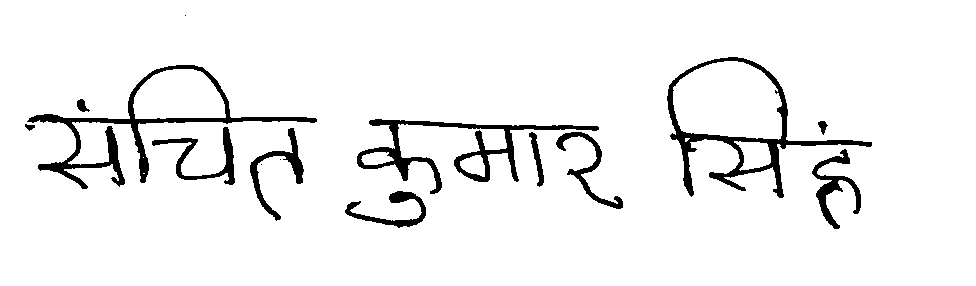 संचित कुमार सिहं